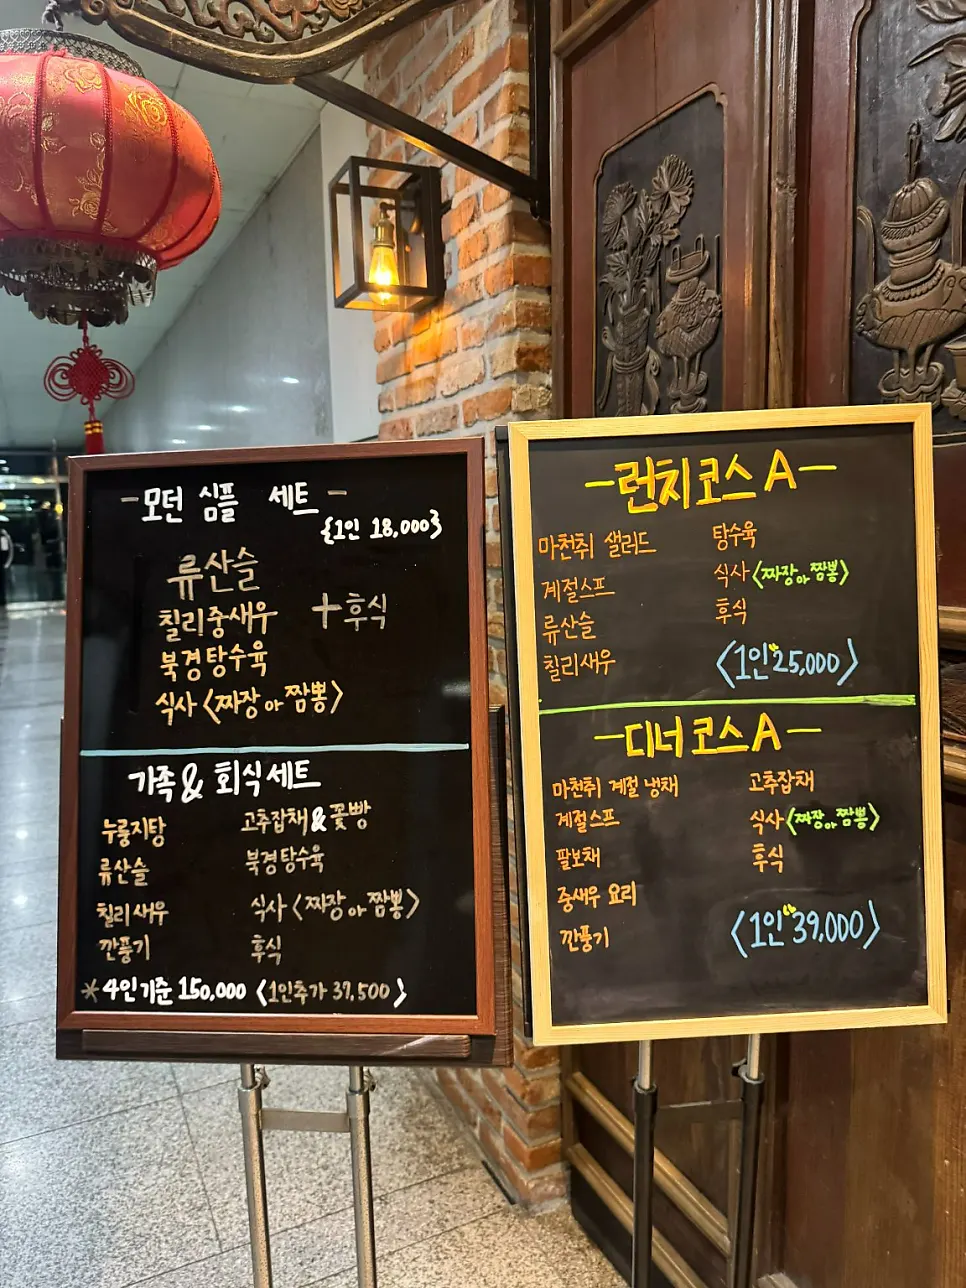 -모던 심플 세트-
{1인 18,000}
류산슬
칠리중새우 +후식
북경탕수육
식사<짜장 or 짬뽕>
가족& 회식세트
누룽지탕
류산슬
칠리새우
깐풍기
고추잡채&꽃빵
북경탕수육
식사<짜장 or 짬뽕>
후식
*4인기준 150,000 <1인추가 37,500>
-런치코스A-
마천취 샐러드
계절스프
류산슬
칠리새우
탕수육
식사<짜장 or 짬뽕>
후식
<1인 25,000>
-디너코스A-
마천취 계절 냉채
계절스프
팔보채
중새우 요리
깐풍기
고추잡채
식사<짜장 or 짬뽕>
후식
<1인 39,000>